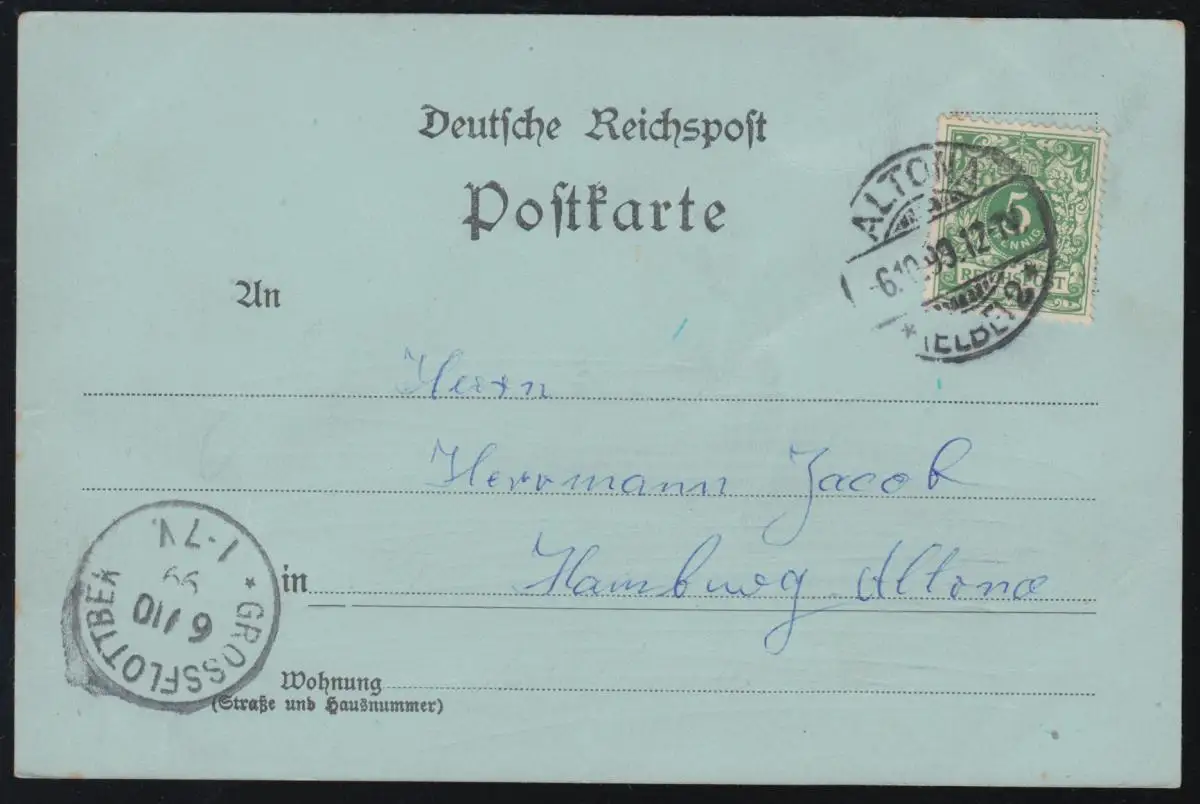 Deutsche Reichspost
Postkarte
5
PFENNIG
REICHSPOST
ALTONA
-6.10.99.12-1N
* (ELBE) 2 *
An
Herrn
Herrmann Jacob
in Hamburg Altona
Wohnung
(Straße und Hausnummer)
* GROSSFLOTTBEK
6/10
99
1-7N.